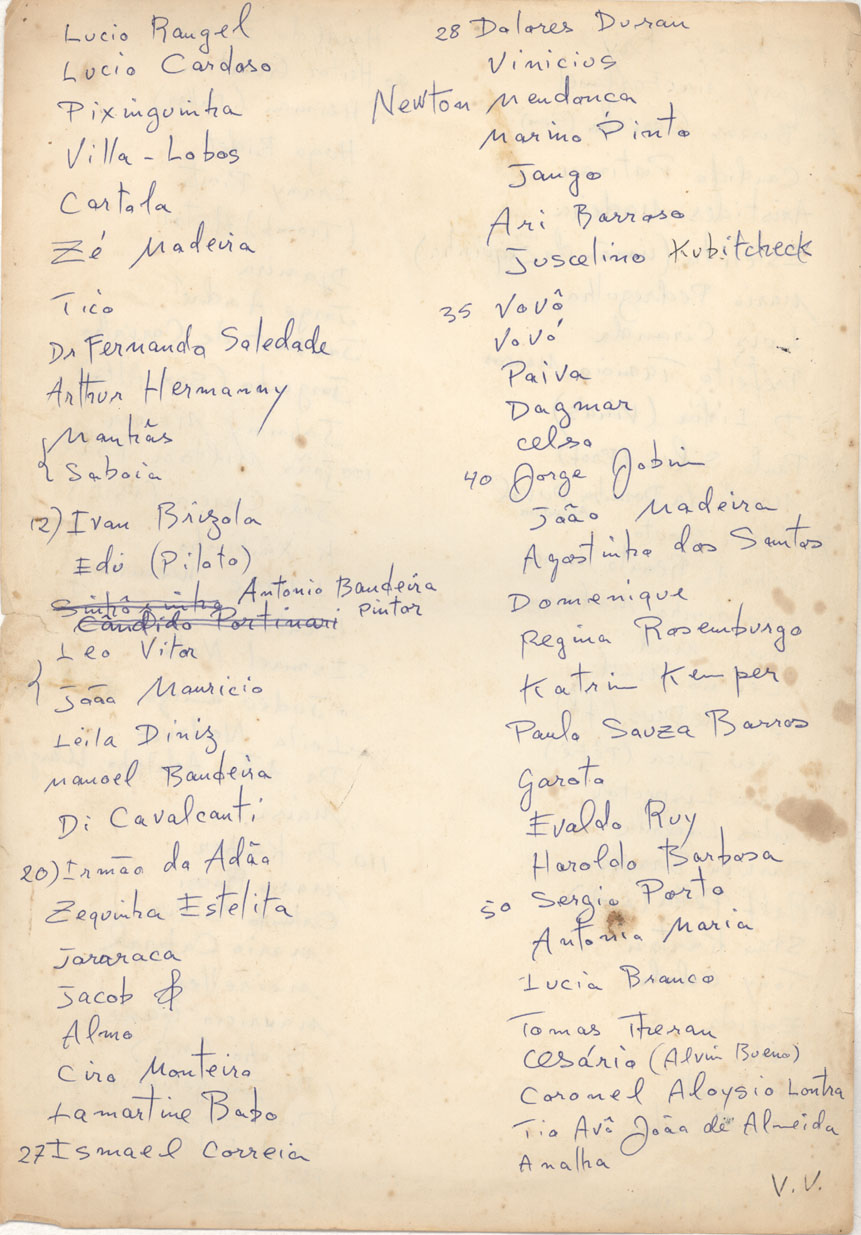 Lucio Rangel
Lucio Cardoso
Pixinguinha
Villa-Lobos
Cartola
Zé Madeira
Tico
Dr Fernando Soledade
Arthur Hermanny
Manhãs
Saboia
12) Ivan Brizola
Edú (Piloto)
Antonio Bandeira
Cândido Portinari pintor
Leo Vitor
João Mauricio
Leila Diniz
Manoel Bandeira
Di Cavalcanti
20) Irmão da Adão
Zequinha Estelita
Jararaca
Jacob
Almo
Ciro Monteiro
Lamartine Babo
27 Ismael Correia
28 Dolores Duran
Vinicius
Newton Mendonca
Marino Pinto
Jango
Ari Barroso
Juscelino Kubitcheck
35 Vovô
Vovó
Paiva
Dagmar
Celso
40 Jorge Jobim
João Madeira
Agostinho dos Santos
Domenique
Regina Rosemburgo
Katrin Kemper
Paulo Souza Barros
Garoto
Evaldo Ruy
Haroldo Barbosa
50 Sergio Porto
Antonio Maria
Lucia Branco
Tomas Theran
Cesário (Alvin Bueno)
Coronel Aloysio Lontra
Tio Avô João de Almeida
Analha
V.V.